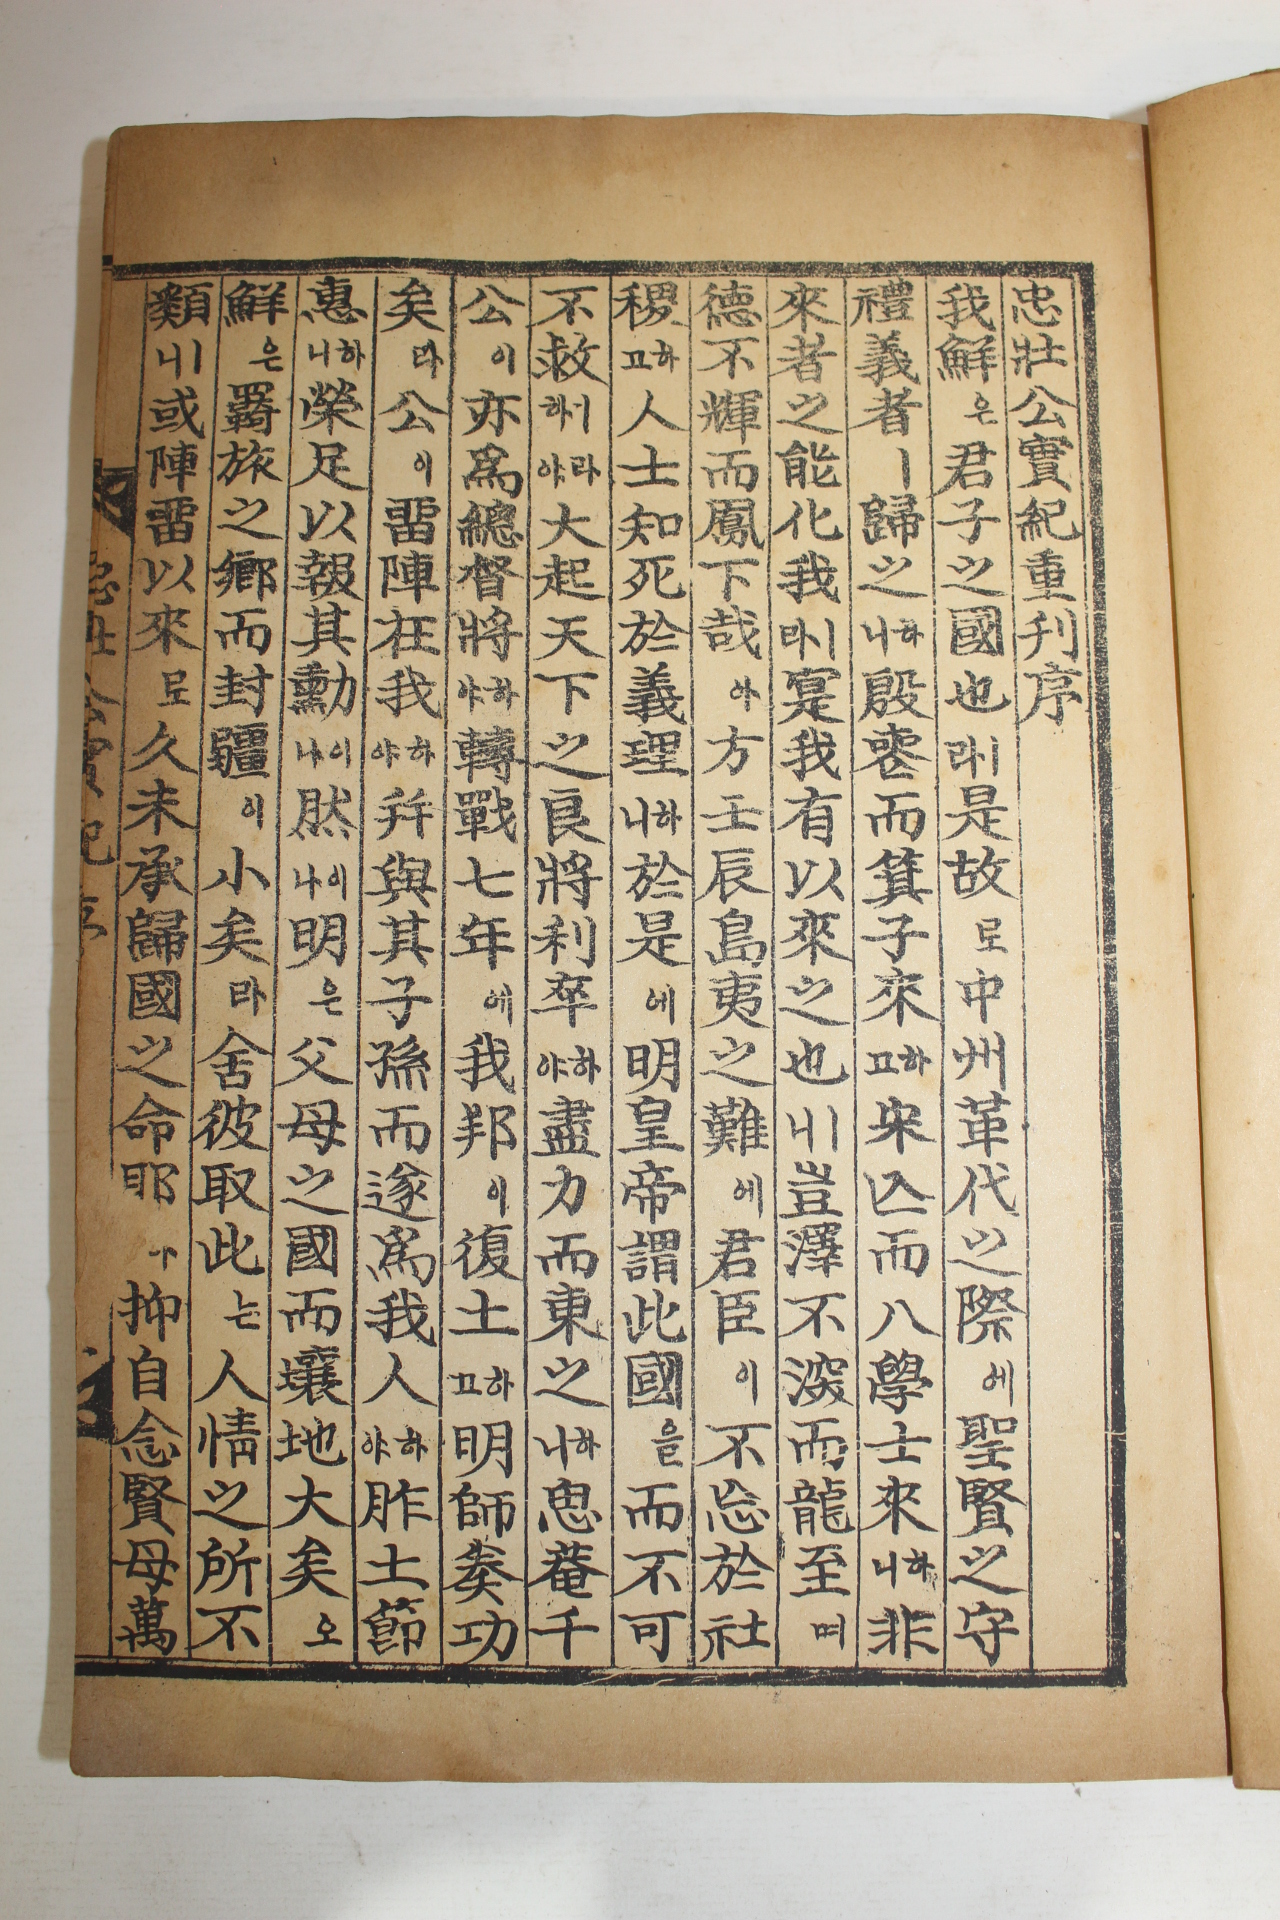 忠壯公實紀重刋序
我鮮은君子之國也라ㅣ是故로中州革代之際에聖賢之守
禮義者ㅣ歸之하니殷喪而箕子來하고宋亾而八學士來하니非
來者之能化我라ㅣ寔我有以來之也ㅣ니豈澤不深而龍至며
德不輝而鳳下哉아方壬辰島夷之難에君臣이不忘於社
稷하고人士知死於義理하니於是에明皇帝謂此國을而不可
不救ㅣ라하야大起天下之良將利卒하야盡力而東之하니思菴千
公이亦爲總督將하야轉戰七年에我邦이復土하고明師奏功
矣라公이畱陣在我하야幷與其子孫而遂爲我人하야胙土節
惠하니榮足以報其勳이나然이나明은父母之國而壤地大矣오
鮮은羇旅之鄕而封疆이小矣라舍彼取此는人情之所不
類ㅣ니或陣畱以來로久未承歸國之命耶아抑自念賢母萬
忠壯公實紀序